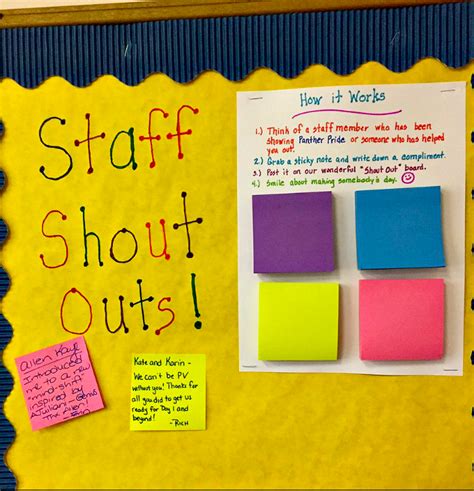 Staff
Shout
Outs!
How it Works
1.) Think of a staff member who has been
showing Panther Pride or someone who has helped
you out.
2.) Grab a sticky note and write down a compliment.
3.) Post it on our wonderful "Shout Out" board.
4.) Smile about making somebody's day.
Allen Kaye
Introduced
me to a new
mind-shift
inspired by
Kate and Karin -
We can't be PV
without you! Thanks for
all you did to get us
ready for Day 1 and
beyond!
-Rich